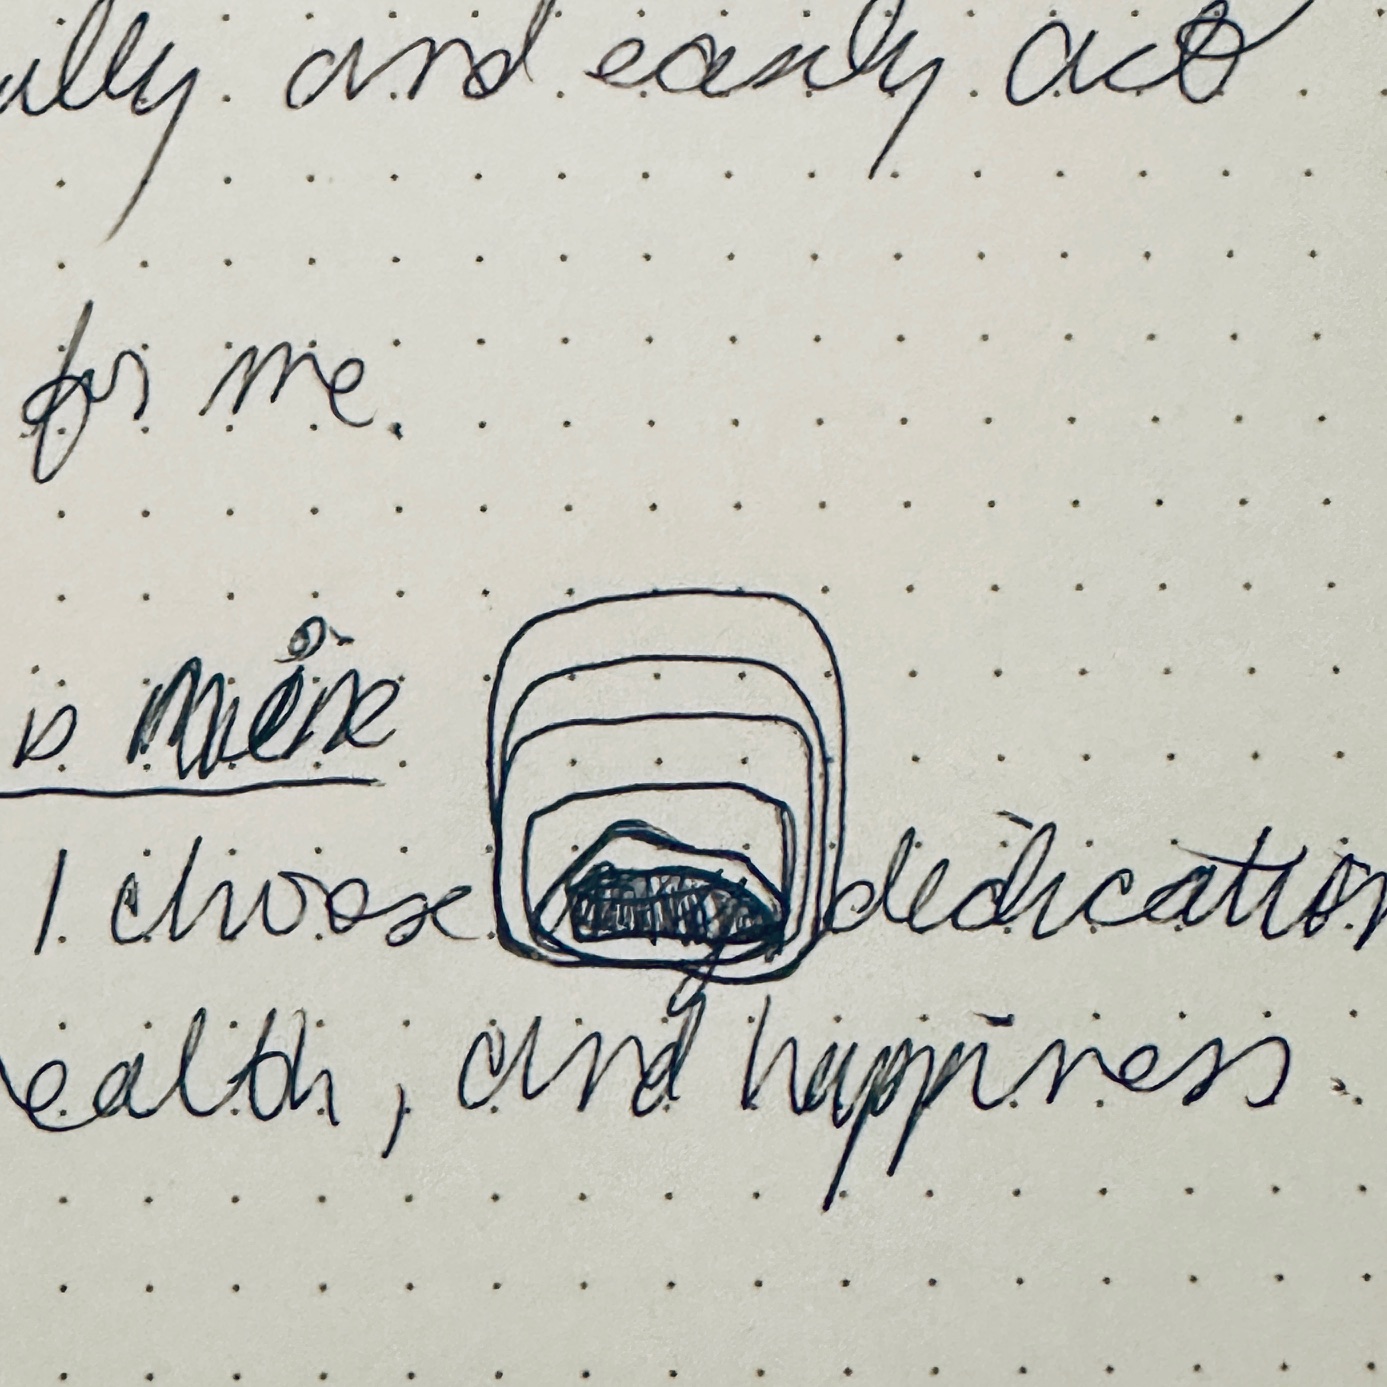 ally and easily act
for me.
is mine
I choose dedication
ealth, and happiness.